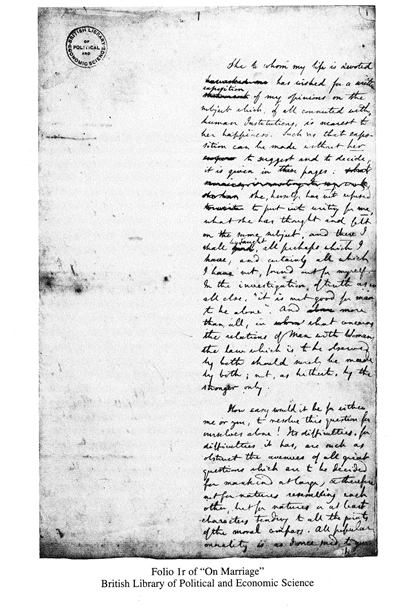 1r
1
BRITISH LIBRARY
OF
POLITICAL
AND
ECONOMIC SCIENCE
She to whom my life is devoted
has wished for a written
exposition
of my opinions on the
subject which, of all connected with
human Institutions, is nearest to
her happiness. Such as that expo-
sition can be made without her
to suggest and to decide,
it is given in these pages:
she, herself, has not refused
to put into writing for me,
what she has thought and felt
on the same subject, and there I
shall be taught, all perhaps which I
have, and certainly all which
I have not, found out for myself.
In the investigation of truth as in
all else, "it is not good for man
to be alone." And more
than all, in what concerns
the relations of Man with Woman,
the law which is to be observed
by both should surely be made
by both; not, as hitherto, by the
stronger only.
How easy would it be for either
me or you, to resolve this question for
ourselves alone! Its difficulties, for
difficulties it has, are such as
obstruct the avenues of all great
questions which are to be decided
for mankind at large, & therefore
not for natures resembling each
other, but for natures or at least
characters tending to all the points
of the moral compass. All popular
morality is as I once said to you
Folio 1r of “On Marriage”
British Library of Political and Economic Science